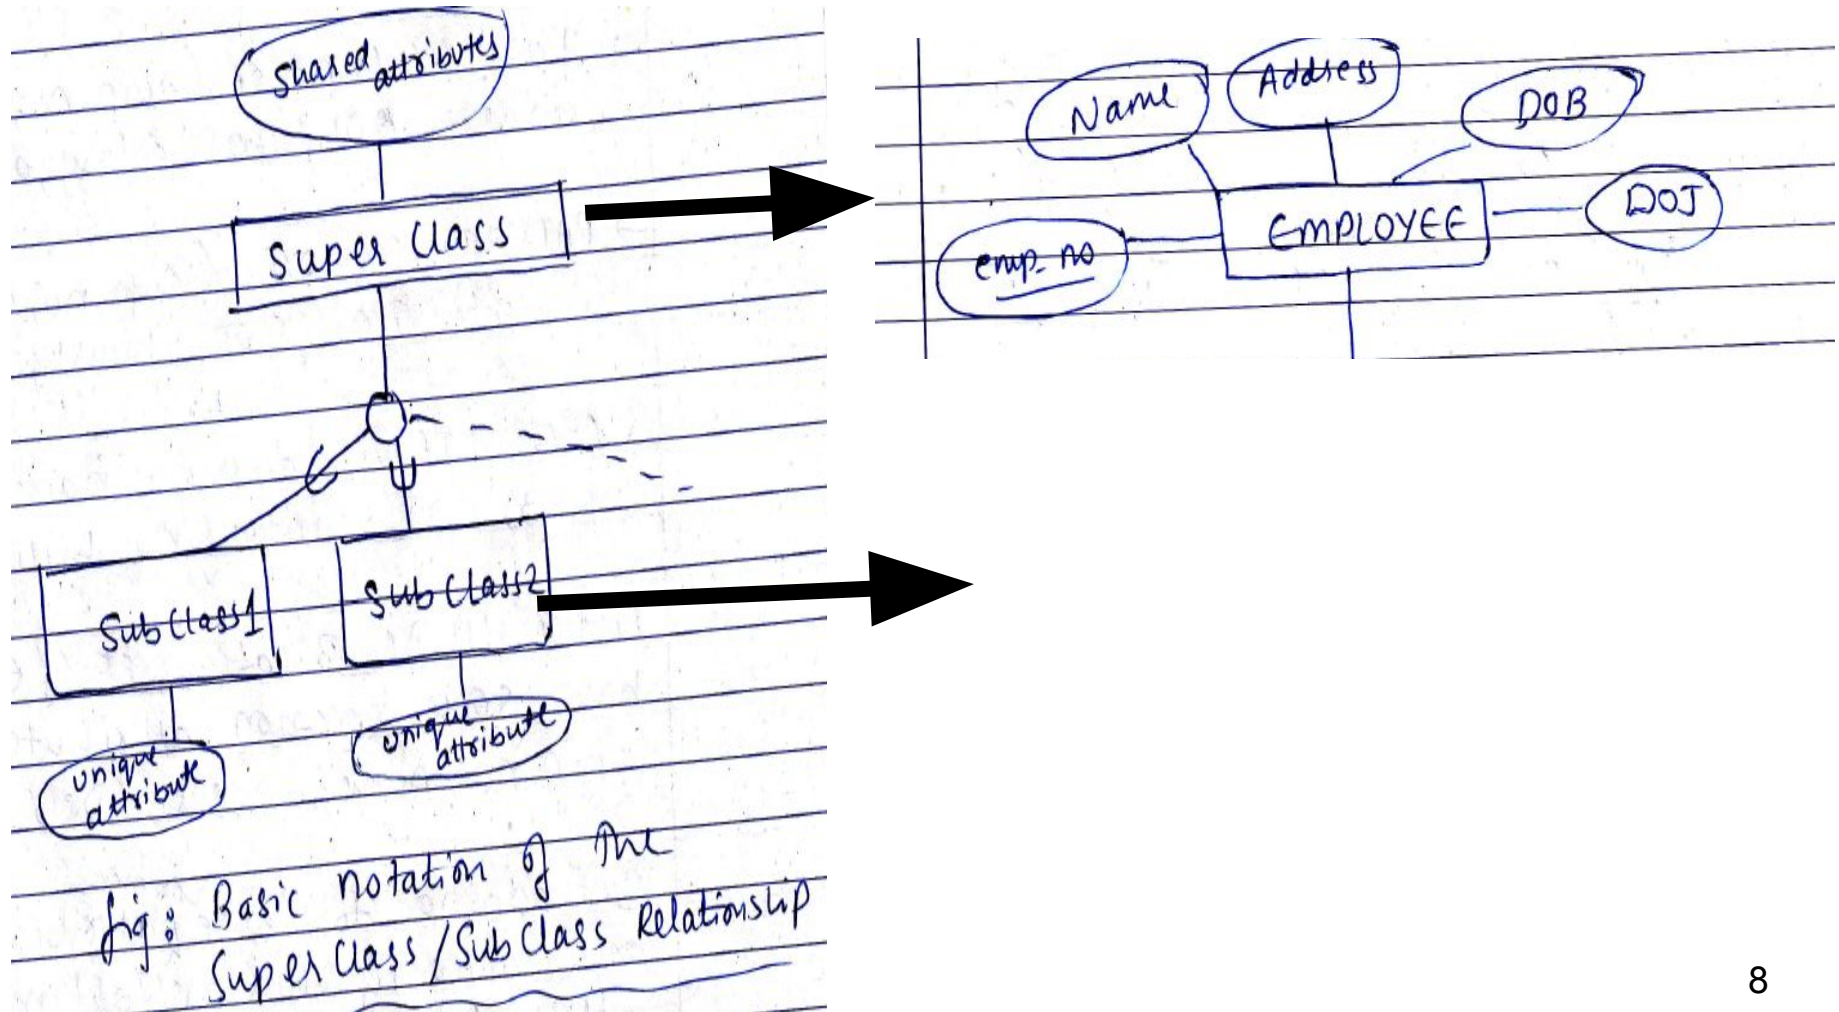 Shared
attributes
Super Class
SubClass1
SubClass2
unique
attribute
unique
attribute
fig: Basic notation of the
SuperClass/SubClass Relationship
Name
Address
DOB
DOJ
EMPLOYEE
emp_no
8